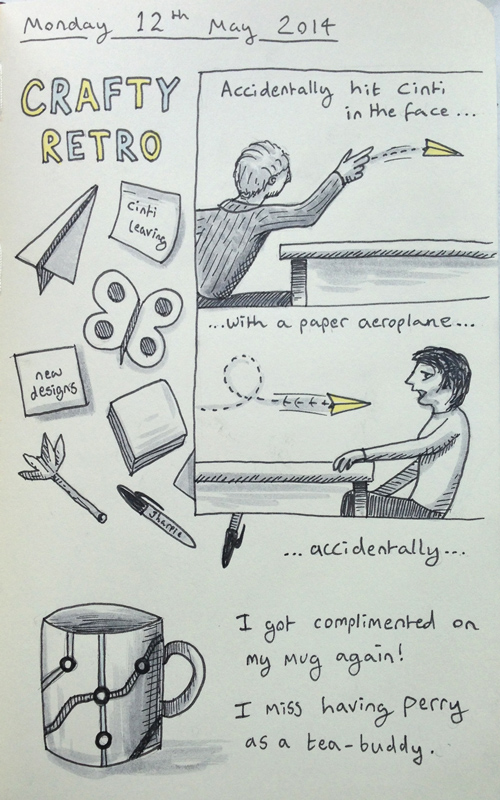 Monday 12th May 2014
CRAFTY
RETRO
cinti
leaving
new
designs
Sharpie
Accidentally hit Cinti
in the face...
...with a paper aeroplane...
... accidentally...
I got complimented on
my mug again!
I miss having perry
as a tea-buddy.